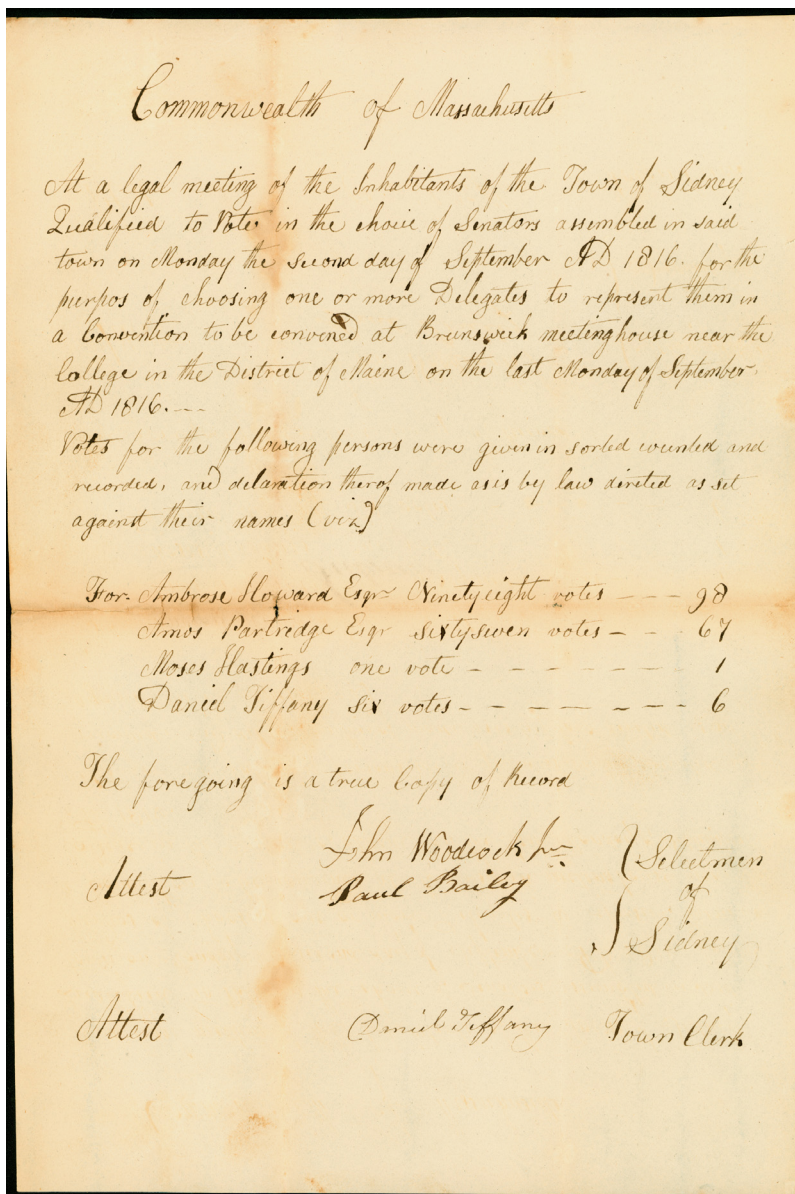 Commonwealth of Massachusetts
At a legal meeting of the Inhabitants of the Town of Sidney
Qualified to Vote in the choice of Senators assembled in said
town on Monday the second day of September AD 1816. for the
purpos of choosing one or more Delegates to represent them in
a Convention to be convened at Brunswick meetinghouse near the
College in the District of Maine on the last Monday of September
AD 1816.---
Votes for the following persons were given in sorted counted and
recorded, and delaration therof made as is by law direted as set
against their names (viz)
For. Ambrose Howard Esqr Ninetyeight votes --- 98
Amos Partridge Esqr sixtyseven votes - - - 67
Moses Hastings one vote - - - - - - - 1
Daniel Tiffany six votes - - - - - - - 6
The foregoing is a true Copy of Record
John Woodcock Junr
Attest Paul Bailey } Selectmen of Sidney
Attest Daniel Tiffany Town Clerk